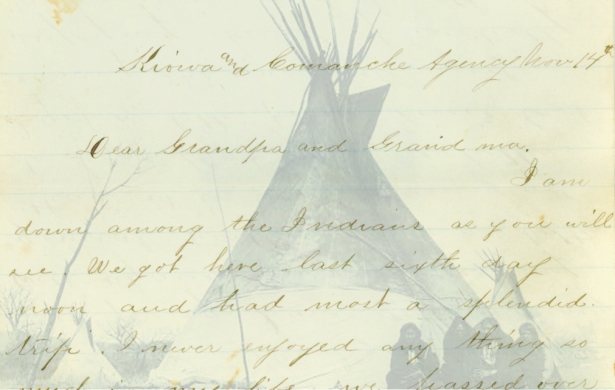 Kiowa and Comanche Agency Nov 14th
Dear Grandpa and Grand ma.
I am
down among the Indians as you will
see. We got here last sixth day
noon and had most a splendid
trip. I never enjoyed any thing so
much in my life we passed over